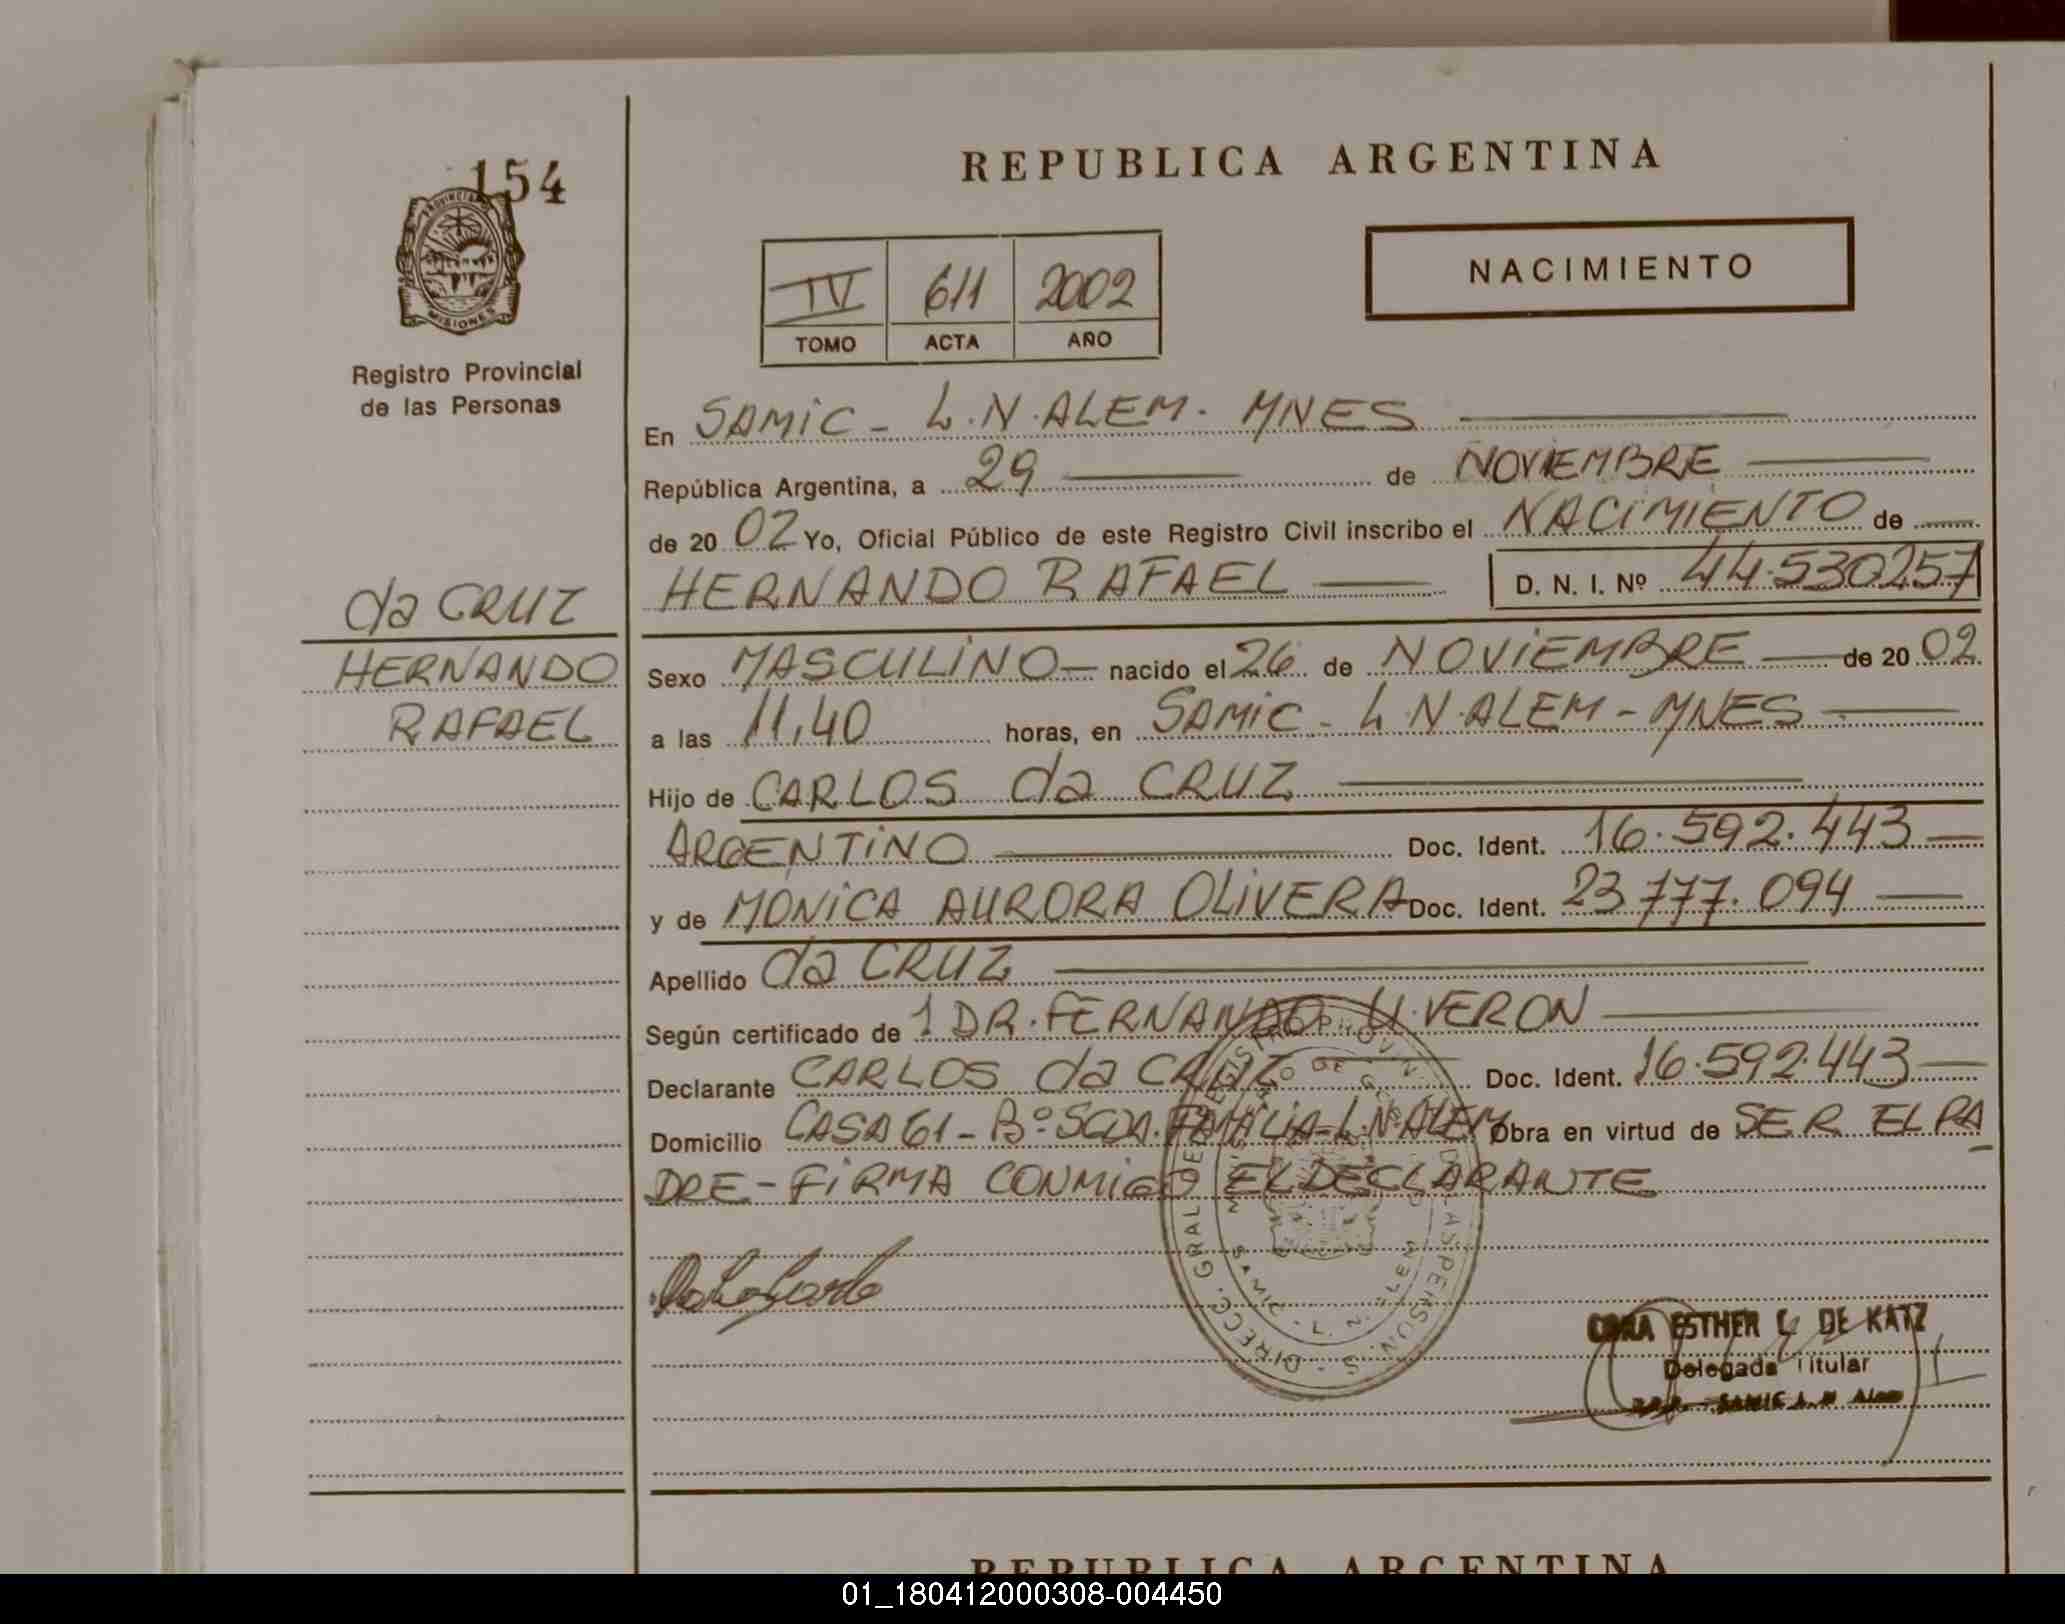 154
PROVINCIA DE
MISIONES
Registro Provincial
de las Personas
da CRUZ
HERNANDO
RAFAEL
REPUBLICA ARGENTINA
IV 611 2002
TOMO ACTA AÑO
NACIMIENTO
En SAMIC - L.N.ALEM. MNES
República Argentina, a 29 de NOVIEMBRE
de 20 02 Yo, Oficial Público de este Registro Civil inscribo el NACIMIENTO de
HERNANDO RAFAEL D. N. I. Nº 44.530257
Sexo MASCULINO nacido el 26 de NOVIEMBRE de 20 02
a las 11,40 horas, en SAMIC - L.N.ALEM - MNES
Hijo de CARLOS da CRUZ
ARGENTINO Doc. Ident. 16.592.443
y de MONICA AURORA OLIVERA Doc. Ident. 23.777.094
Apellido da CRUZ
Según certificado de 1 DR. FERNANDO U. VERON
Declarante CARLOS da CRUZ Doc. Ident. 16.592.443
Domicilio CASA 61 - Bº SGDA. FAMILIA - L.N.ALEM Obra en virtud de SER EL PA
DRE - FIRMA CONMIGO EL DECLARANTE
DIRECC. GRAL DE
SAMIC - L. N. ALEM
ESTHER DE KATZ
Delegada Titular
SAMIC L. N Alem
REPUBLICA ARGENTINA
01_180412000308-004450